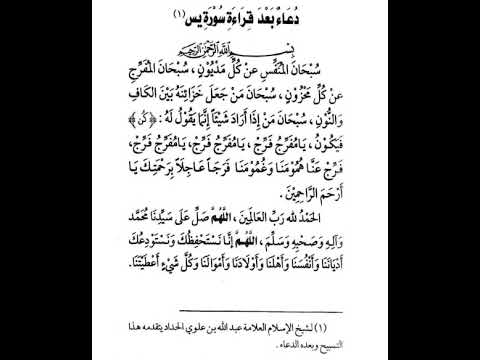 دُعَاءٌ بَعْدَ قِرَاءَةِ سُوْرَةِ يس (١)
بِسْمِ اللَّهِ الرَّحْمٰنِ الرَّحِيْمِ
سُبْحَانَ المُنَفِّسِ عَنْ كُلِّ مَدْيُوْنٍ ، سُبْحَانَ المُفَرِّجِ
عَنْ كُلِّ مَحْزُوْنٍ ، سُبْحَانَ مَنْ جَعَلَ خَزَائِنَهُ بَيْنَ الكَافِ
وَالنُّوْنِ ، سُبْحَانَ مَنْ إِذَا أَرَادَ شَيْئًا إِنَّمَا يَقُوْلُ لَهُ : ﴿كُن﴾
فَيَكُوْنُ ، يَا مُفَرِّجُ فَرِّجْ ، يَا مُفَرِّجُ فَرِّجْ ، يَا مُفَرِّجُ فَرِّجْ ،
فَرِّجْ عَنَّا هُمُوْمَنَا وَغُمُوْمَنَا فَرَجاً عَاجِلاً بِرَحْمَتِكَ يَا
أَرْحَمَ الرَّاحِمِيْنَ .
الحَمْدُ لله رَبِّ العَالَمِيْنَ ، اللَّهُمَّ صَلِّ عَلَى سَيِّدِنَا مُحَمَّدٍ
وَآلِهِ وَصَحْبِهِ وَسَلِّمْ ، اللَّهُمَّ إِنَّا نَسْتَحْفِظُكَ وَنَسْتَوْدِعُكَ
أَدْيَانَنَا وَأَنْفُسَنَا وَأَهْلَنَا وَأَوْلَادَنَا وَأَمْوَالَنَا وَكُلَّ شَيْءٍ أَعْطَيْتَنَا.
(١) لشيخ الإسلام العلامة عبد الله بن علوي الحداد يتقدمه هذا
التسبيح وبعده الدعاء .